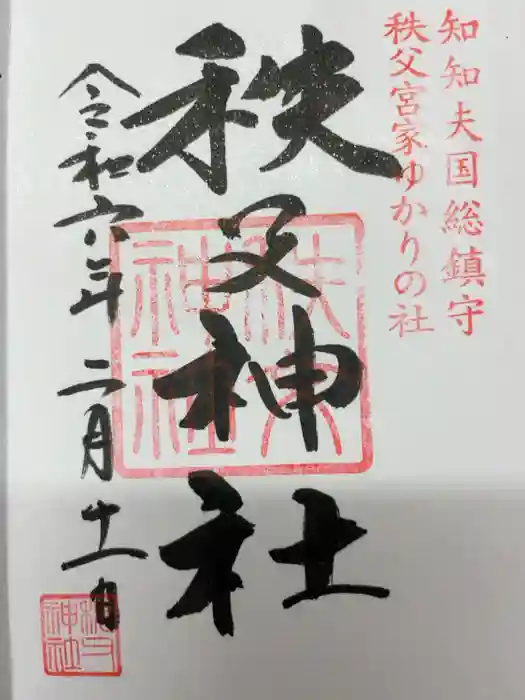 知知夫国総鎮守
秩父宮家ゆかりの社
秩父神社
秩父神社
令和六年二月十一日
秩父神社